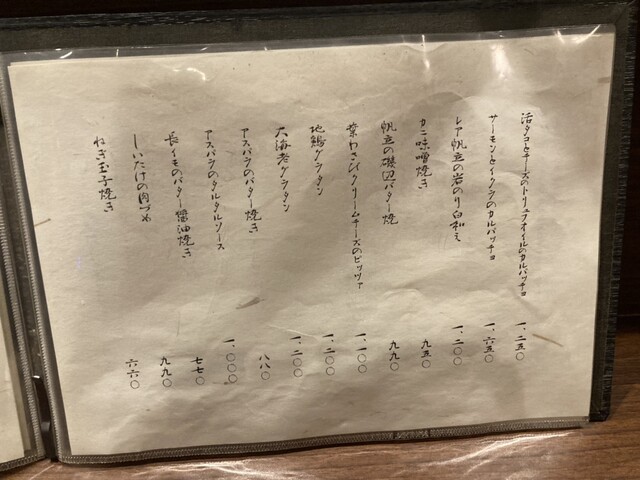 活タコとチーズのトリュフオイルのカルパッチョ 一、二五〇
サーモンとイクラのカルパッチョ 一、六五〇
レア帆立の岩のり白和え 一、二〇〇
カニ味噌焼き 九五〇
帆立の磯辺バター焼 九九〇
葉わさびクリームチーズのピッツァ 一、一〇〇
地鶏グラタン 一、二〇〇
大海老グラタン 一、二〇〇
アスパラのバター焼き 八八〇
アスパラのタルタルソース 一、〇〇〇
長イモのバター醤油焼き 七七〇
しいたけの肉づめ 九九〇
ねぎ玉子焼き 六六〇